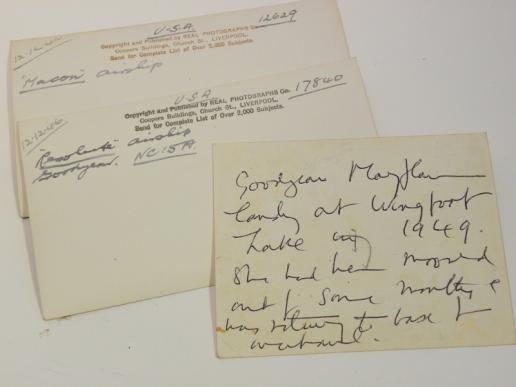 U-S-A. 12629
12-12-46
Copyright and Published by REAL PHOTOGRAPHS Co.
Coopers Buildings, Church St., LIVERPOOL.
Send for Complete List of Over 2,000 Subjects.
"Macon" airship
U-S-A. 17840
12-12-46
Copyright and Published by REAL PHOTOGRAPHS Co.
Coopers Buildings, Church St., LIVERPOOL.
Send for Complete List of Over 2,000 Subjects.
"Resolute" airship
Goodyear. NC15A.
Goodyear Mayflower
landing at Wingfoot
Lake in 1949.
She had been moored
out for some months &
was returning to base for
overhaul.